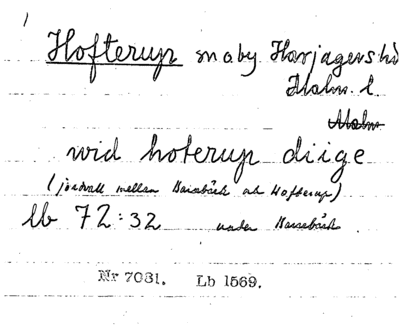 Hofterup sn o by Harjagers hd
Malm. l.
wid hoterup diige
(jordvall mellan Barsebäck och Hofterup)
Lb 72:32 under Barsebäck
Nr 7031. Lb 1569.